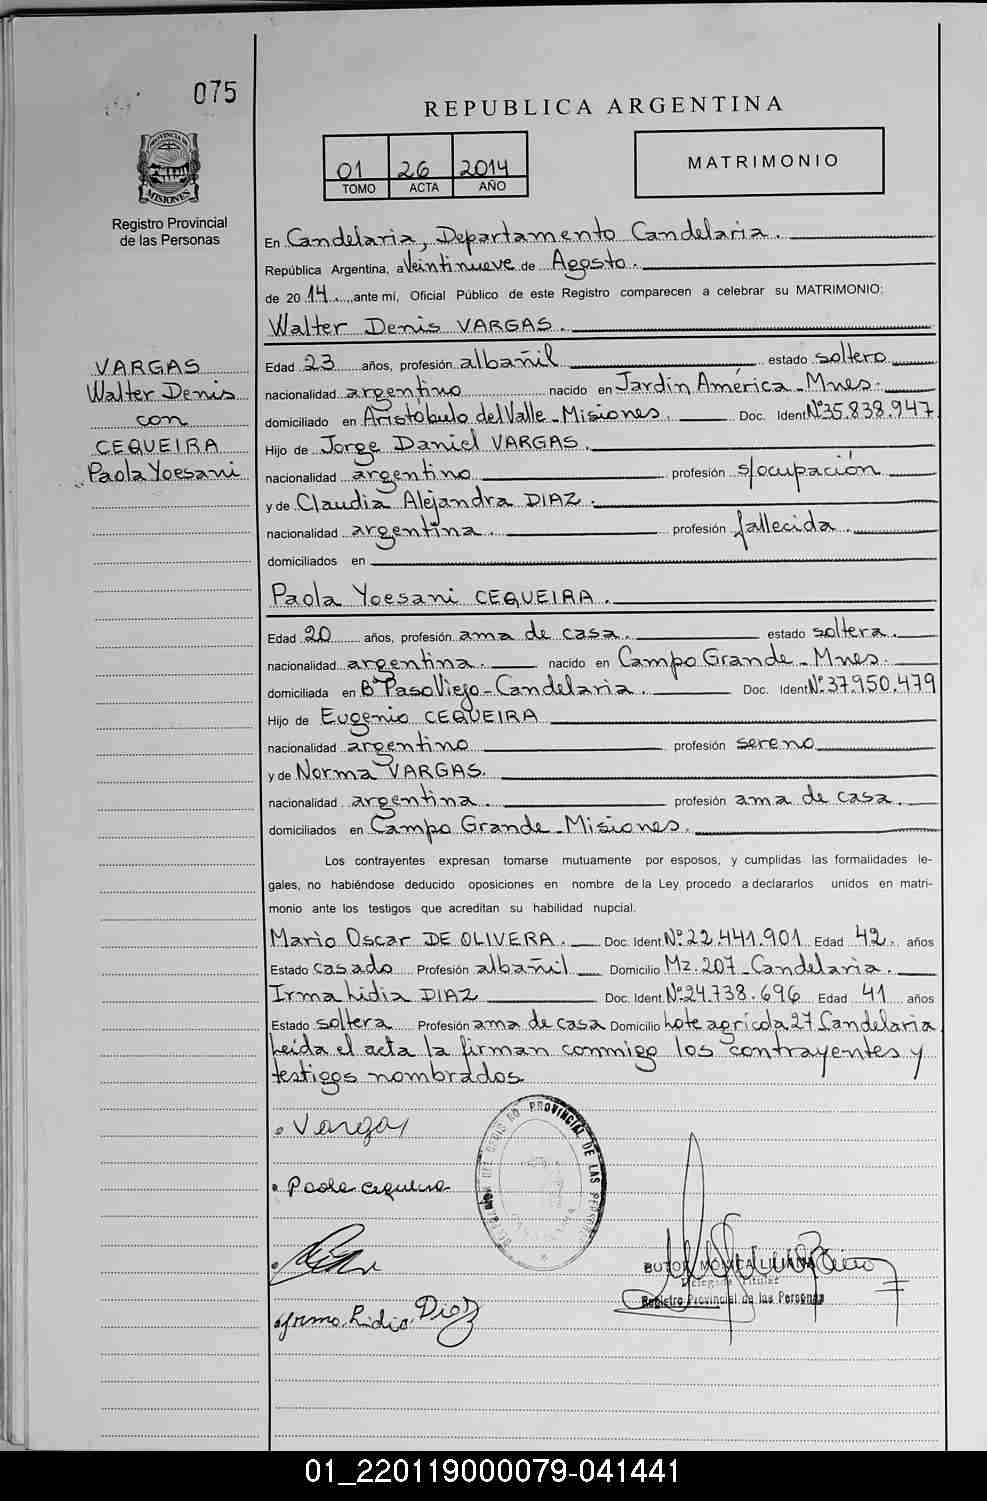 075
REPUBLICA ARGENTINA
01 26 2014
TOMO ACTA AÑO
MATRIMONIO
PROVINCIA DE
MISIONES
Registro Provincial
de las Personas
VARGAS
Walter Denis
con
CEQUEIRA
Paola Yoesani
En Candelaria, Departamento Candelaria.
República Argentina, a Veintinueve de Agosto.
de 20 14 ante mí, Oficial Público de este Registro comparecen a celebrar su MATRIMONIO:
Walter Denis VARGAS.
Edad 23 años, profesión albañil estado soltero
nacionalidad argentino nacido en Jardín América - Mnes.
domiciliado en Aristóbulo del Valle - Misiones. Doc. Ident Nº 35.838.947
Hijo de Jorge Daniel VARGAS.
nacionalidad argentino profesión s/ocupación
y de Claudia Alejandra DIAZ.
nacionalidad argentina. profesión fallecida.
domiciliados en
Paola Yoesani CEQUEIRA.
Edad 20 años, profesión ama de casa. estado soltera.
nacionalidad argentina. nacido en Campo Grande - Mnes.
domiciliada en Bº Paso Viejo - Candelaria. Doc. Ident Nº 37.950.479
Hijo de Eugenio CEQUEIRA
nacionalidad argentino profesión sereno
y de Norma VARGAS.
nacionalidad argentina. profesión ama de casa.
domiciliados en Campo Grande - Misiones.
Los contrayentes expresan tomarse mutuamente por esposos, y cumplidas las formalidades le-
gales, no habiéndose deducido oposiciones en nombre de la Ley procedo a declararlos unidos en matri-
monio ante los testigos que acreditan su habilidad nupcial.
Mario Oscar DE OLIVERA. Doc. Ident Nº 22.441.901 Edad 42. años
Estado casado Profesión albañil Domicilio Mz. 207 - Candelaria.
Irma Lidia DIAZ Doc. Ident Nº 24.738.696 Edad 41 años
Estado soltera Profesión ama de casa Domicilio Lote agrícola 27 Candelaria
Leída el acta la firman conmigo los contrayentes y
testigos nombrados
Vargas
Paola Cequeira
Irma Lidia Diaz
PROVINCIAL DE LAS PERSONAS
BUTOR MONICA LILIANA
Delegada Titular
Registro Provincial de las Personas
01_220119000079-041441